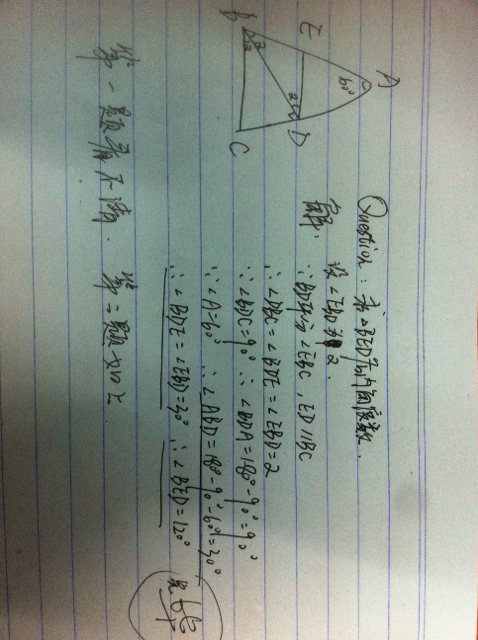 Question: 求△BED各内角度数.
设∠EBD为2.
解:
∵BD平分∠EBC, ED∥BC
∴∠DBC=∠BDE=∠EBD=2
∵∠BDC=90° ∴∠BDA=180°-90°=90°
∵∠A=60° ∴∠ABD=180°-90°-60°=30°
∴∠BDE=∠EBD=30° ∴∠BED=120°
第一题看不清. 第二题如上
A
60°
E
B
D
C